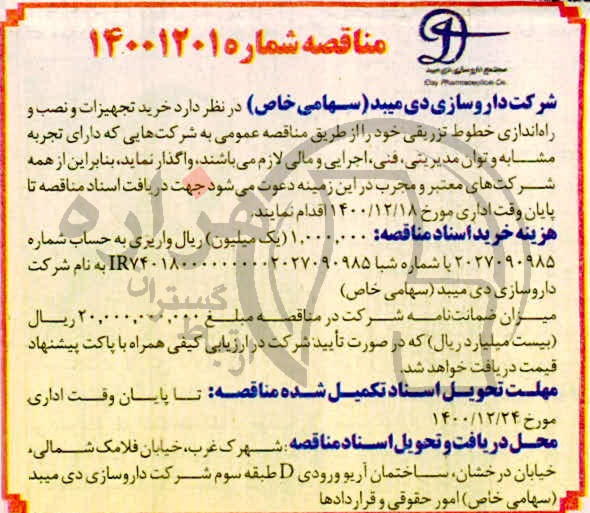 مناقصه شماره ۱۴۰۰۱۲۰۱
مجتمع داروسازی دی میبد
Day Pharmaceutical Co.
شرکت داروسازی دی میبد (سهامی خاص) در نظر دارد خرید تجهیزات و نصب و
راه‌اندازی خطوط تزریقی خود را از طریق مناقصه عمومی به شرکت‌هایی که دارای تجربه
مشابه و توان مدیریتی، فنی، اجرایی و مالی لازم می‌باشند، واگذار نماید، بنابراین از همه
شرکت‌های معتبر و مجرب در این زمینه دعوت می‌شود جهت دریافت اسناد مناقصه تا
پایان وقت اداری مورخ ۱۴۰۰/۱۲/۱۸ اقدام نمایند.
هزینه خرید اسناد مناقصه: ۱,۰۰۰,۰۰۰ (یک میلیون) ریال واریزی به حساب شماره
۲۰۲۷۰۹۰۹۸۵ با شماره شبا IR۷۴۰۱۸۰۰۰۰۰۰۰۰۰۰۲۰۲۷۰۹۰۹۸۵ به نام شرکت
داروسازی دی میبد (سهامی خاص)
میزان ضمانت‌نامه شرکت در مناقصه مبلغ ۲۰,۰۰۰,۰۰۰,۰۰۰ ریال
(بیست میلیارد ریال) که در صورت تأیید شرکت در ارزیابی کیفی همراه با پاکت پیشنهاد
قیمت دریافت خواهد شد.
مهلت تحویل اسناد تکمیل شده مناقصه: تا پایان وقت اداری
مورخ ۱۴۰۰/۱۲/۲۴
محل دریافت و تحویل اسناد مناقصه: شهرک غرب، خیابان فلامک شمالی،
خیابان درخشان، ساختمان آریو ورودی D طبقه سوم شرکت داروسازی دی میبد
(سهامی خاص) امور حقوقی و قراردادها
هزاره
گستران